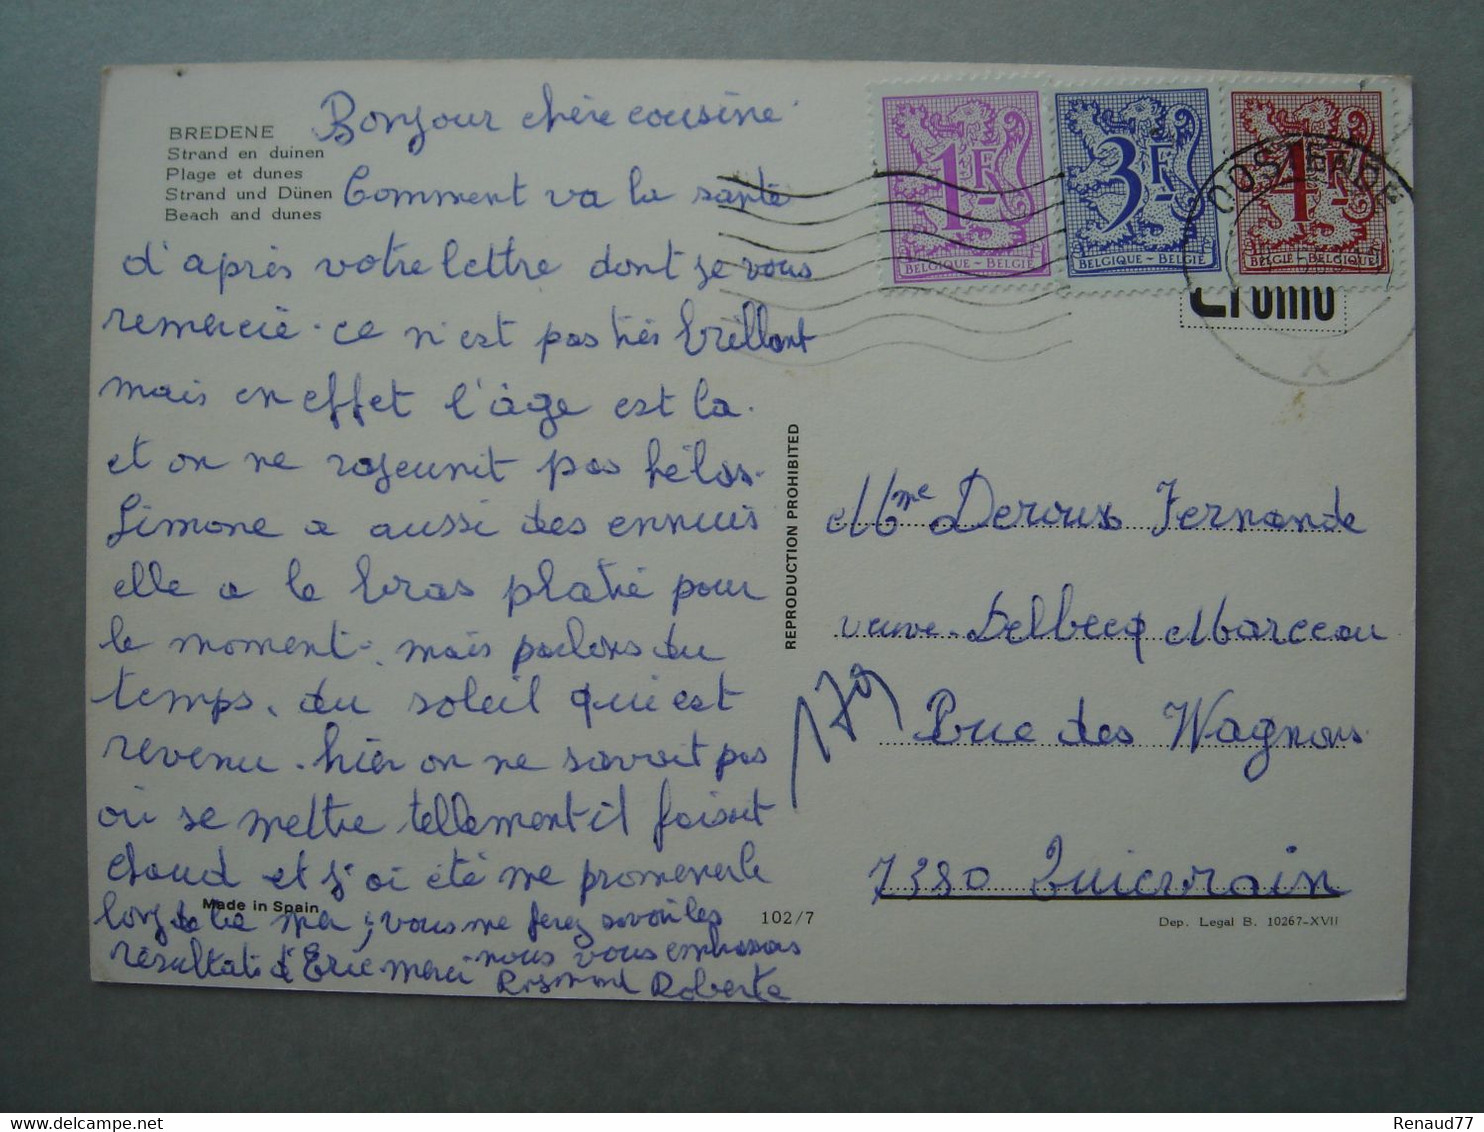 BREDENE
Strand en duinen
Plage et dunes
Strand und Dünen
Beach and dunes
Bonjour chère cousine
Comment va la santé
d'après votre lettre dont je vous
remercie. ce n'est pas très brillant
mais en effet l'âge est là.
et on ne rajeunit pas hélas.
Simone a aussi des ennuis
elle a le bras platré pour
le moment. mais parlons du
temps. du soleil qui est
revenu. hier on ne savait pas
où se mettre tellement il faisait
chaud et j'ai été me promener le
long de la mer, vous me ferez savoir les
résultats d'Eric merci nous vous embrassons
Rosmond Roberte
Made in Spain
102/7
REPRODUCTION PROHIBITED
1F
BELGIQUE - BELGIË
3F
BELGIQUE - BELGIË
4F
BELGIË - BELGIQUE
OOSTENDE
X
Cromo
Mme Deroux Fernande
veuve Delbecq Marceau
179 rue des Wagnons
7380 Quievrain
Dep. Legal B. 10267-XVII
Renaud77